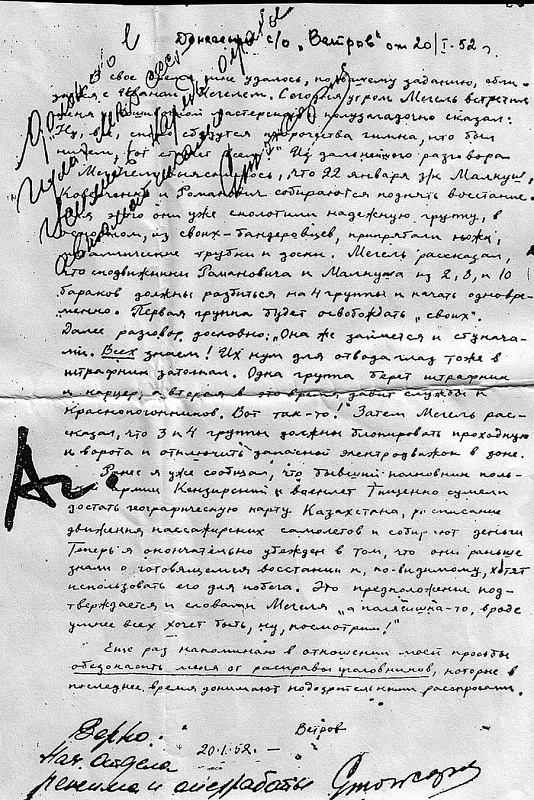 Доложено в
ГУЛаг МВД СССР
Усилить наряды охраны
автоматчиками
Стожаров
Донесение с/о "Ветров" от 20/I-52 г.
В свое время мне удалось, по вашему заданию, сбли-
зиться с Иваном Мегелем. Сегодня утром Мегель встретил
меня у пошивочной мастерской и полузагадочно сказал:
"Ну, всё, скоро сбудутся пророчества гимна, кто был
ничем, тот станет всем!" Из дальнейшего разговора
с Мегелем выяснилось, что 22 января з/к Малкуш,
Коверченко и Романович собираются поднять восстание.
Для этого они уже сколотили надежную группу, в
основном, из своих-бандеровцев, припрятали ножи,
металлические трубки и доски. Мегель рассказал,
что сподвижники Романовича и Малкуша из 2, 8, и 10
бараков должны разбиться на 4 группы и начать одновре-
менно. Первая группа будет освобождать "своих".
Далее разговор дословно: "Она же займется и стукача-
ми. Всех знаем! Их кум для отвода глаз тоже в
штрафник затолкал. Одна группа берет штрафник
и карцер, а вторая в это время давит службы и
краснопогонников. Вот так-то!" Затем Мегель рас-
сказал, что 3 и 4 группы должны блокировать проходную
и ворота и отключить запасной электродвижок в зоне.
Ранее я уже сообщал, что бывший полковник поль-
армии Кензирский и военлет Тищенко сумели
достать географическую карту Казахстана, расписание
движения пассажирских самолетов и собирают деньги
Теперь я окончательно убежден в том, что они раньше
знали о готовящемся восстании и, по-видимому, хотят
использовать его для побега. Это предположение под-
тверждается и словами Мегеля "а полячишка-то, вроде
умнее всех хочет быть, ну, посмотрим!"
Еще раз напоминаю в отношении моей просьбы
обезопасить меня от расправы уголовников, которые в
последнее время донимают подозрительными расспросами.
Ветров
20.1.52.
Верно:
Нач. отдела
режима и оперработы Стожаров